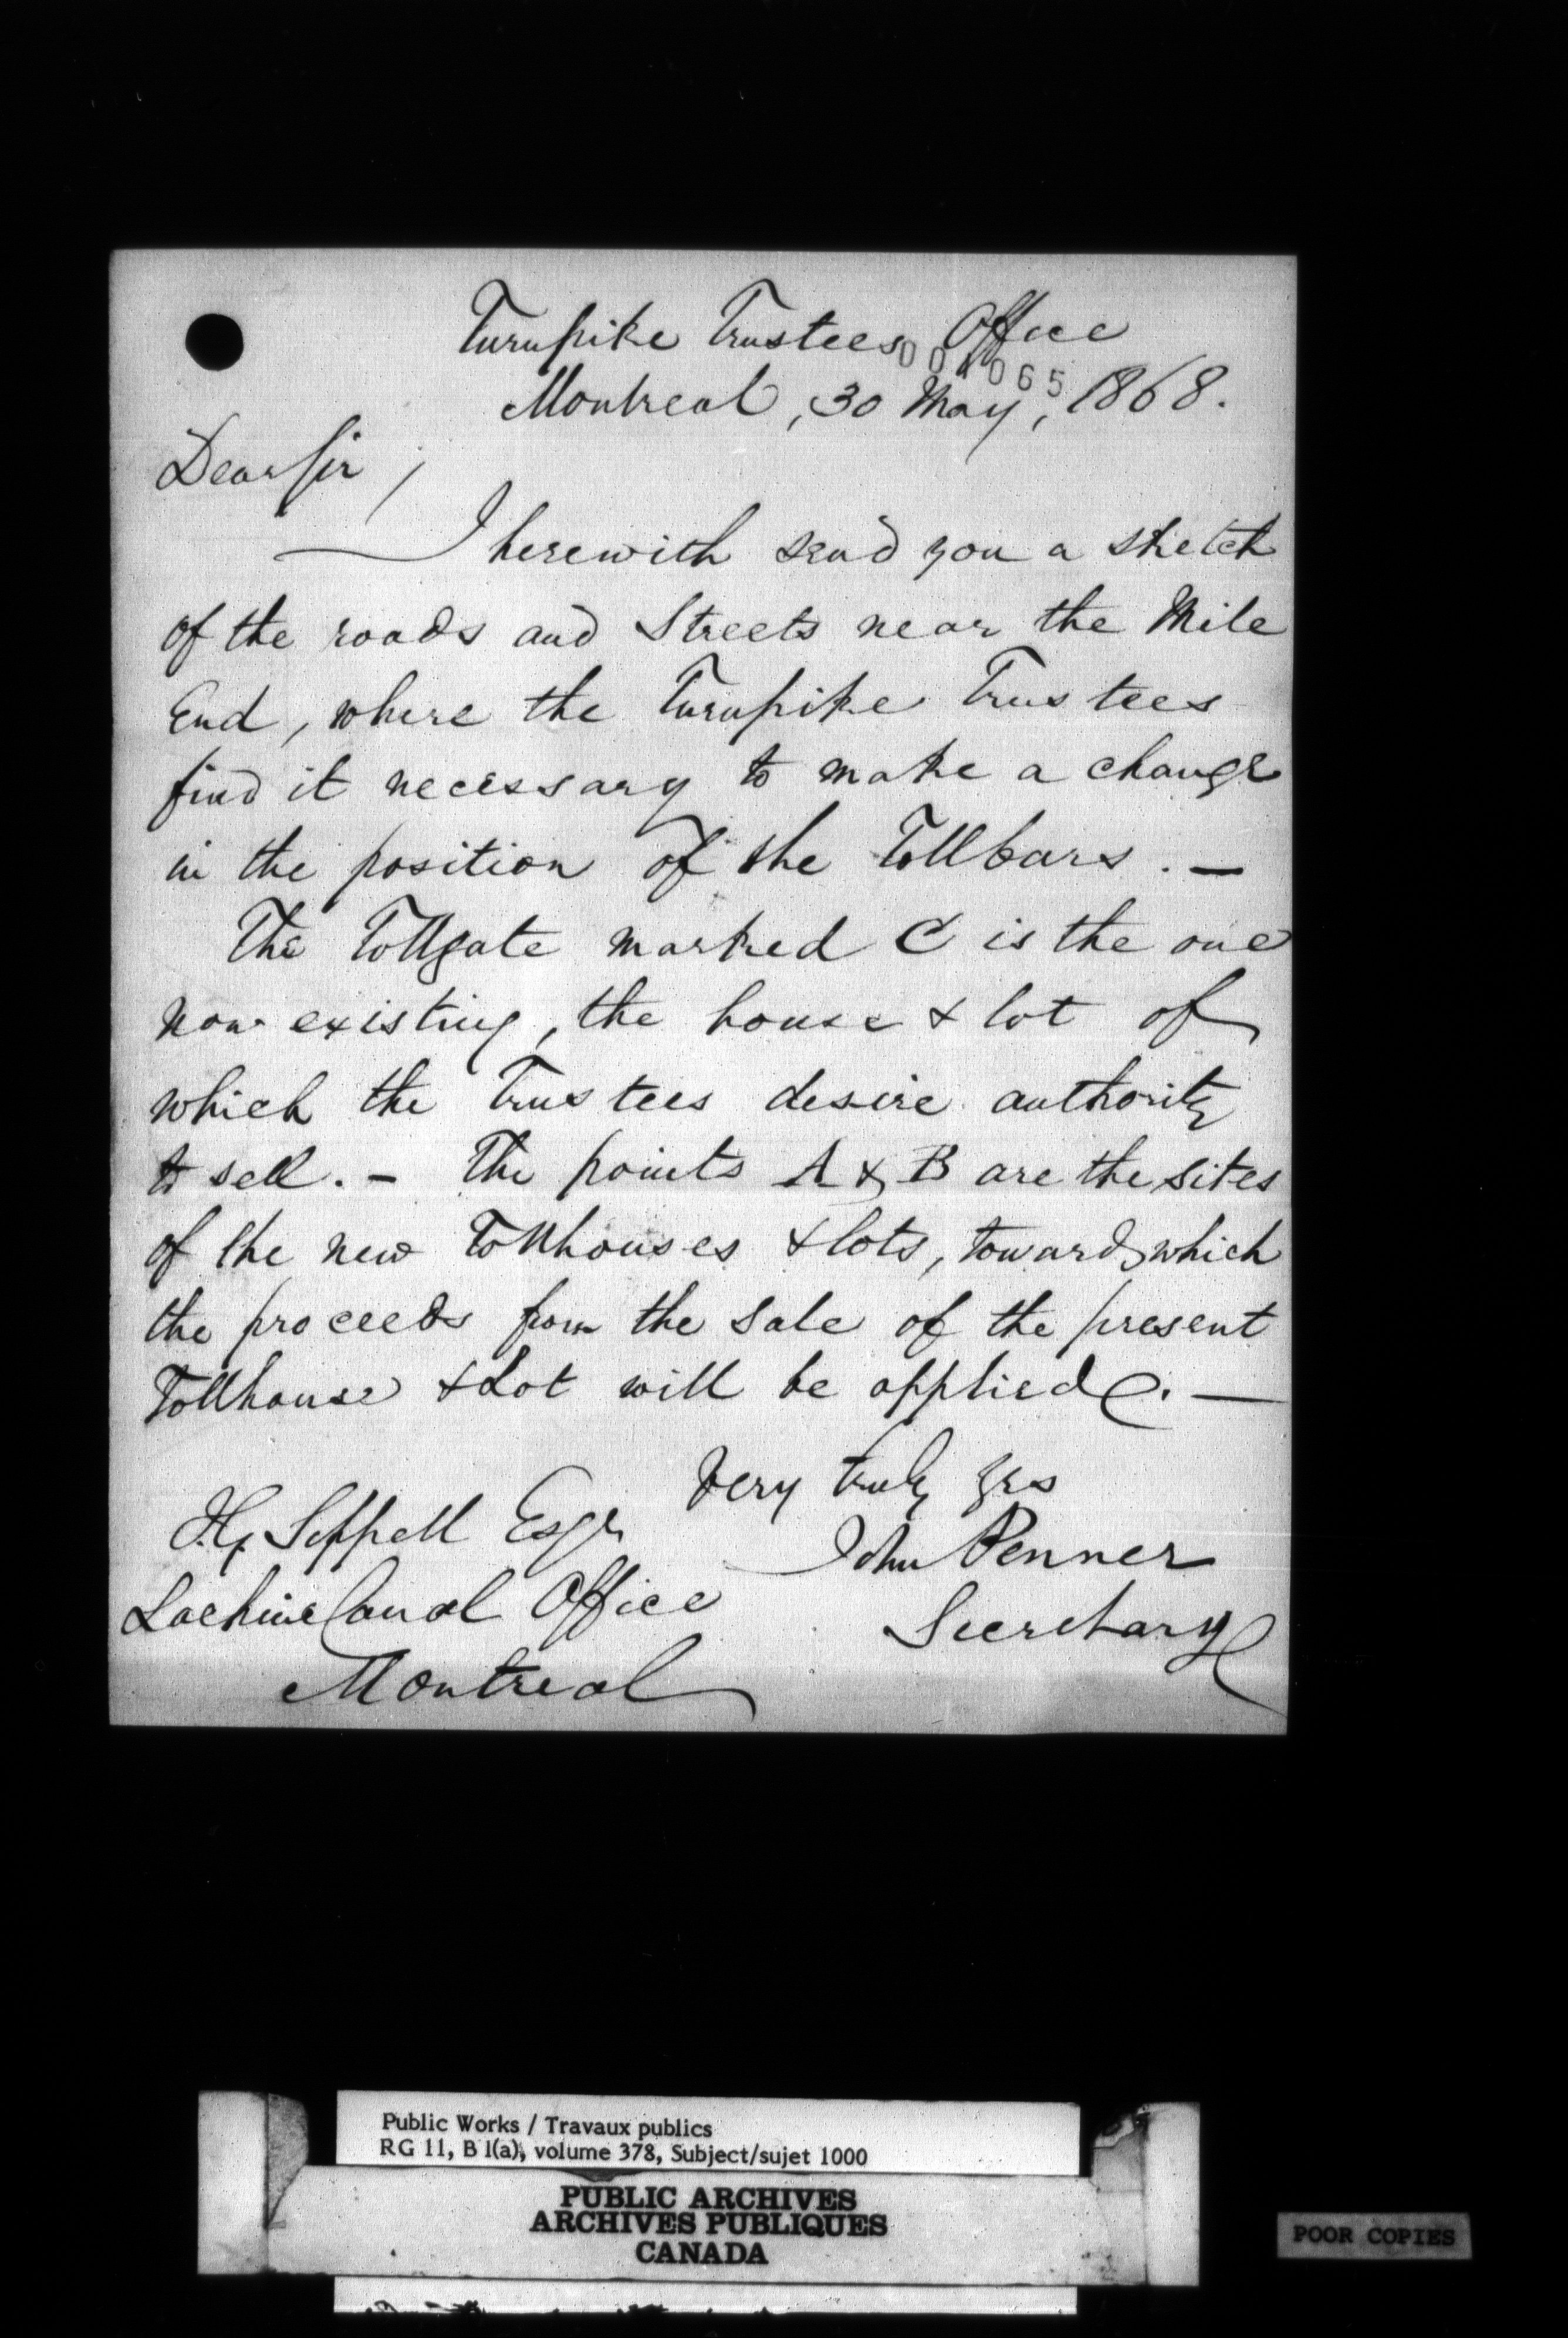 Turnpike Trustees Office
001065
Montreal, 30 May, 1868.
Dear Sir,
I herewith send you a sketch
of the roads and Streets near the Mile
End, where the Turnpike Trustees
find it necessary to make a change
in the position of the Tollbars. —
The Tollgate marked C is the one
now existing, the house & lot of
which the Trustees desire authority
to sell. — The points A & B are the sites
of the new Tollhouses & lots, towards which
the proceeds from the sale of the present
Tollhouse & Lot will be applied. —
Very truly yrs
John Penner
Secretary
Sippell Esqr
Lachine Canal Office
Montreal
Public Works / Travaux publics
RG 11, B 1(a), volume 378, Subject/sujet 1000
PUBLIC ARCHIVES
ARCHIVES PUBLIQUES
CANADA
POOR COPIES